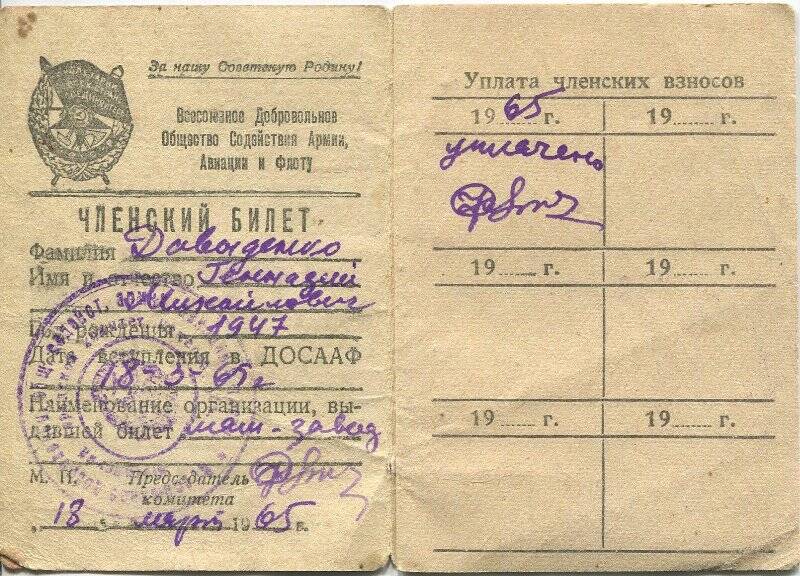 За нашу Советскую Родину!
Всесоюзное Добровольное
Общество Содействия Армии,
Авиации и Флоту
ЧЛЕНСКИЙ БИЛЕТ
Фамилия Давиденко
Имя и отчество Геннадий
Михайлович
Год рождения 1947
Дата вступления в ДОСААФ
18-3-65 г
Наименование организации, вы-
давшей билет маш-завод
М. П. Председатель
комитета
„18 март 1965 г.
Уплата членских взносов
1965 г. 19 г.
уплачено
19 г. 19 г.
19 г. 19 г.